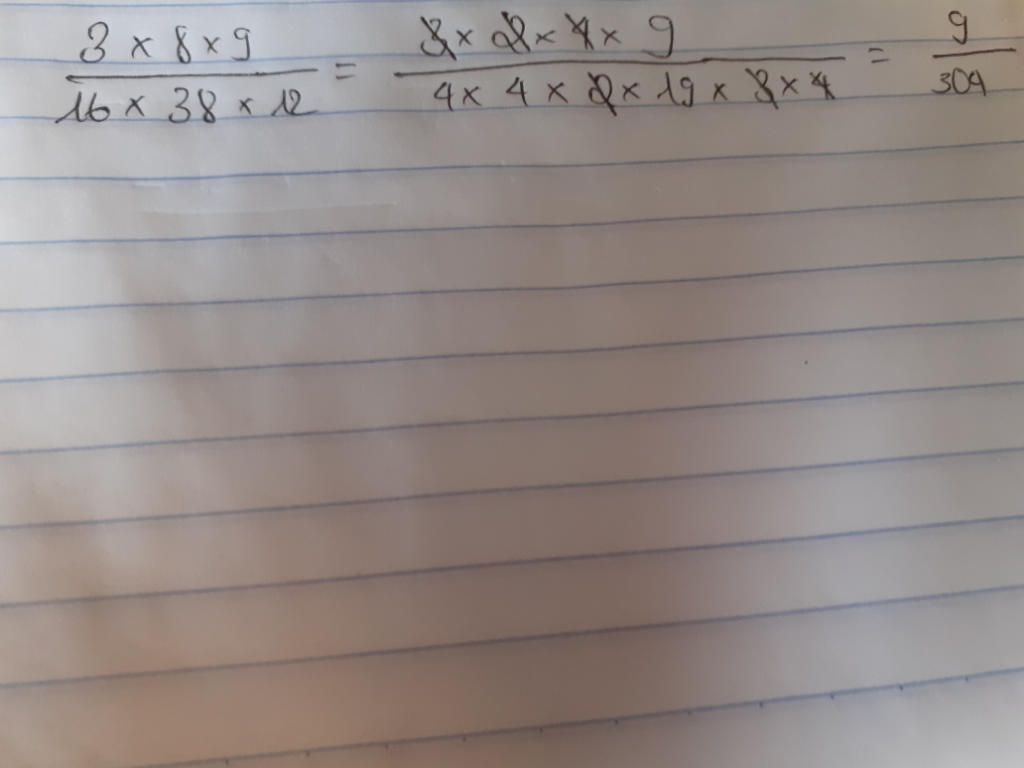 3 × 8 × 9 / 16 × 38 × 12 = 3 × 2 × 4 × 9 / 4 × 4 × 2 × 19 × 3 × 4 = 9 / 304